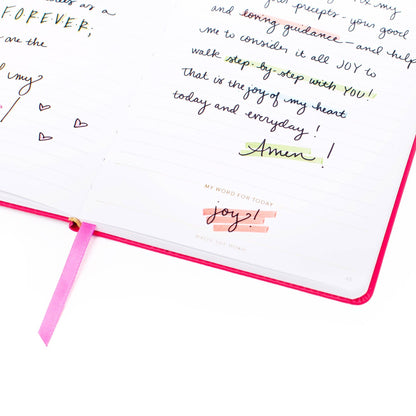 as a
F.O.R.E.V.E.R;
are the
of my
my
and your precepts - your good
and loving guidance - and help
me to consider it all JOY to
walk step-by-step with YOU!
That is the joy of my heart
today and everyday!
Amen!
MY WORD FOR TODAY
joy!
WRITE THE WORD